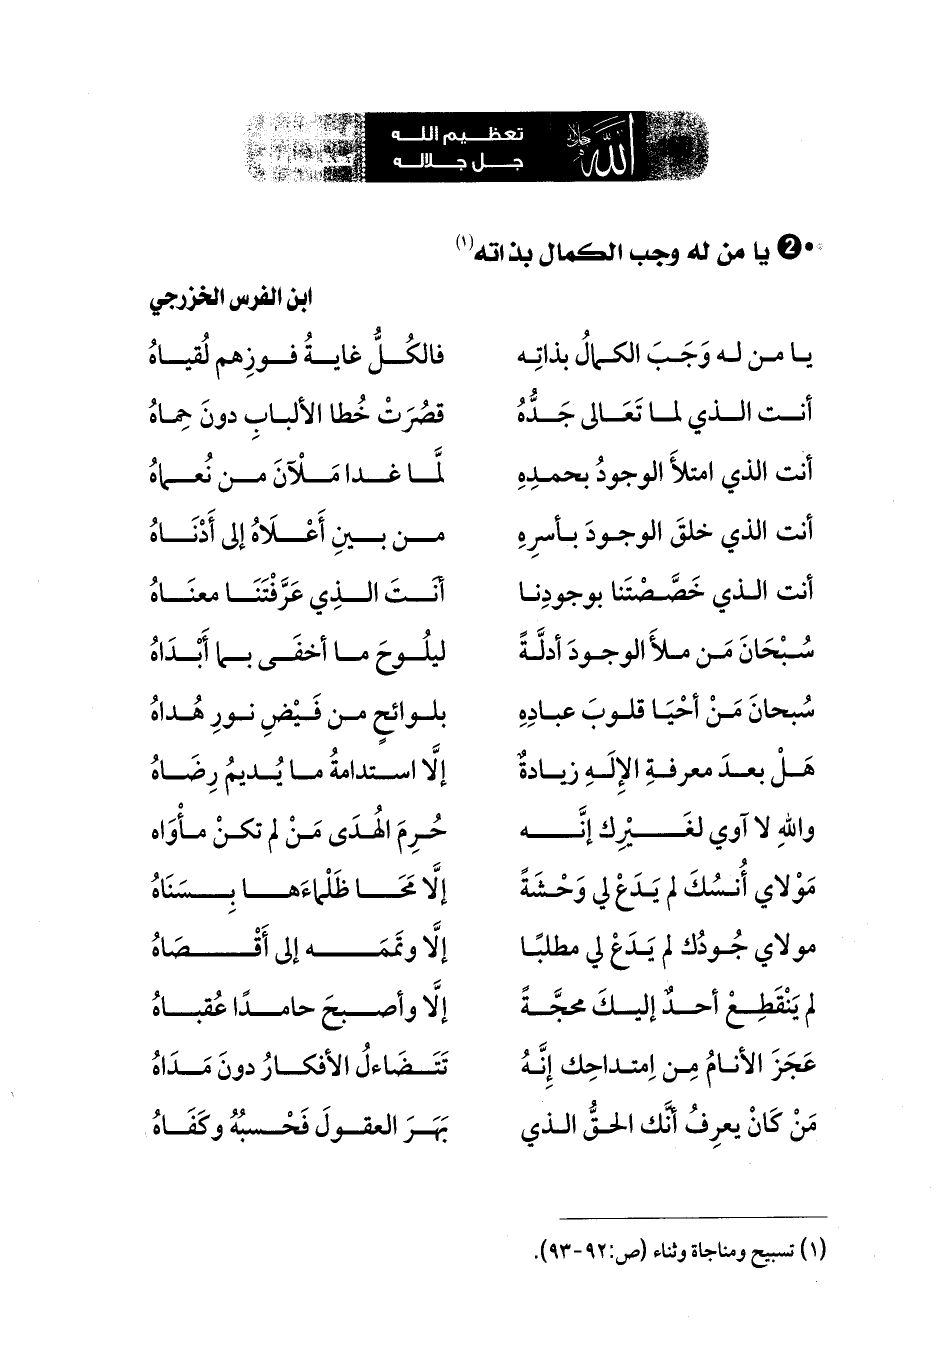 الله جل جلاله
تعظيم الله
جل جلاله
2 يا من له وجب الكمال بذاته(١)
ابن الفرس الخزرجي
يا من له وَجَبَ الكمالُ بذاتِه فالكُلُّ غايةُ فوزِهم لُقياهُ
أنت الذي لما تَعَالى جَدُّهُ قصُرَتْ خُطا الألبابِ دونَ حِماهُ
أنت الذي امتلأَ الوجودُ بحمدِهِ لَّما غدا مَلْآنَ من نُعماهُ
أنت الذي خلقَ الوجودَ بأسرِهِ من بينِ أَعْلَاهُ إلى أَدْنَاهُ
أنت الذي خَصَّصْتَنا بوجودِنا أَنتَ الذِي عَرَّفْتَنَا معنَاهُ
سُبْحَانَ مَن ملأَ الوجودَ أدلَّةً ليلُوحَ ما أخفَى بما أَبْدَاهُ
سُبحانَ مَنْ أحْيَا قلوبَ عبادِهِ بلوائحٍ من فَيْضِ نورِ هُداهُ
هَلْ بعدَ معرفةِ الإلَهِ زيادةٌ إلَّا استدامةُ ما يُديمُ رِضَاهُ
واللهِ لا آوي لغَيْرِك إنَّه حُرِمَ الهُدَى مَنْ لم تكنْ مأوَاه
مَوْلاي أُنسُكَ لم يَدَعْ لي وَحْشَةً إلَّا مَحَا ظَلْماءَها بِسَنَاهُ
مولاي جُودُك لم يَدَعْ لي مطلبًا إلَّا وتمَّمَه إلى أَقْصَاهُ
لم يَنْقَطِعْ أحدٌ إليكَ محجَّةً إلَّا وأصبحَ حامدًا عُقباهُ
عَجَزَ الأنامُ مِن اِمتداحِك إنَّهُ تَتَضَاءلُ الأفكارُ دونَ مَدَاهُ
مَنْ كَانْ يعرِفُ أنَّك الحقُّ الذي بَهَرَ العقولَ فَحْسبُهُ وكَفَاهُ
(١) تسبيح ومناجاة وثناء (ص:٩٢-٩٣).